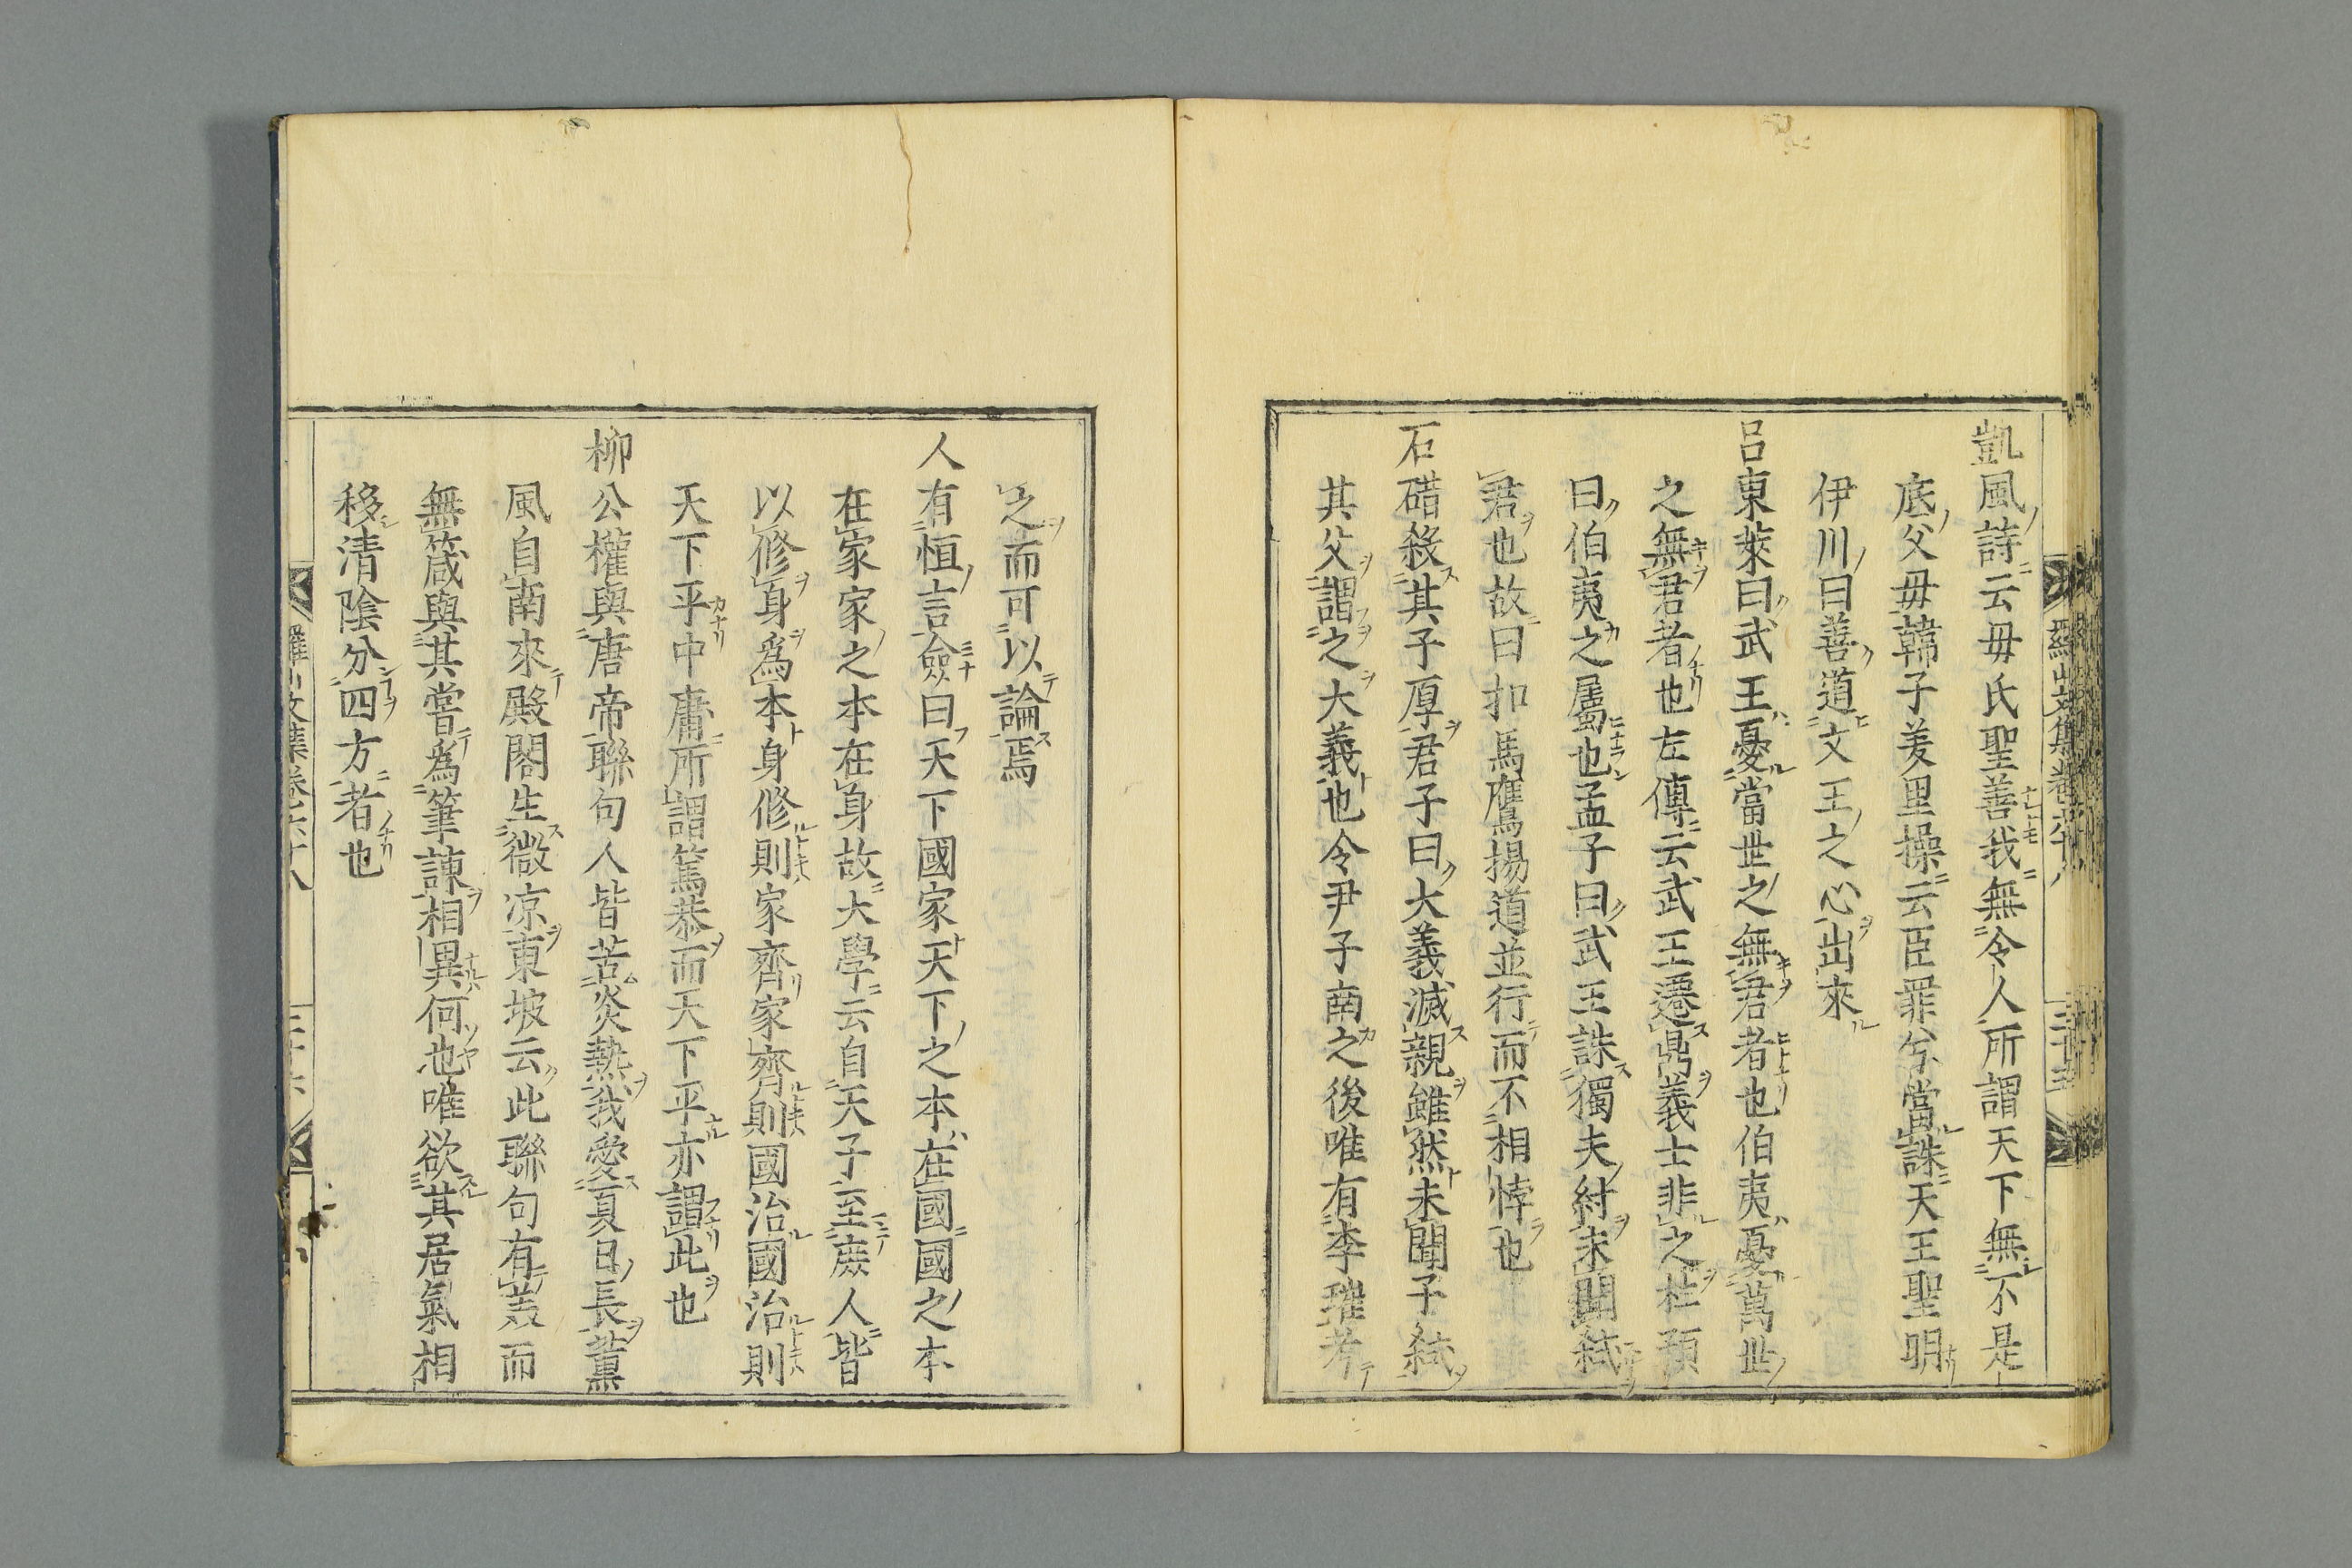 凱風詩云毋氏聖善我無令人所謂天下無不是
底父毋韓子羑里操云臣罪兮當誅天王聖明
伊川曰善道文王之心出來
呂東萊曰武王憂當世之無君者也伯夷憂萬世
之無君者也左傳云武王遷鼎義士非之杜預
曰伯夷之屬也孟子曰武王誅獨夫紂未聞弑
君也故曰扣馬鷹揚道並行而不相悖也
石碏殺其子厚君子曰大義滅親雖然未聞子弑
其父謂之大義也令尹子南之後唯有李璀考
之而可以論焉
人有恒言僉曰天下國家天下之本在國國之本
在家家之本在身故大學云自天子至庶人皆
以修身爲本身修則家齊家齊則國治國治則
天下平中庸所謂篤恭而天下平亦謂此也
柳公權與唐帝聯句人皆苦炎熱我愛夏日長薰
風自南來殿閣生微凉東坡云此聯句有美而
無箴與其嘗爲筆諫相異何也唯欲其居氣相
移清陰分四方者也
羅山文集卷六十八